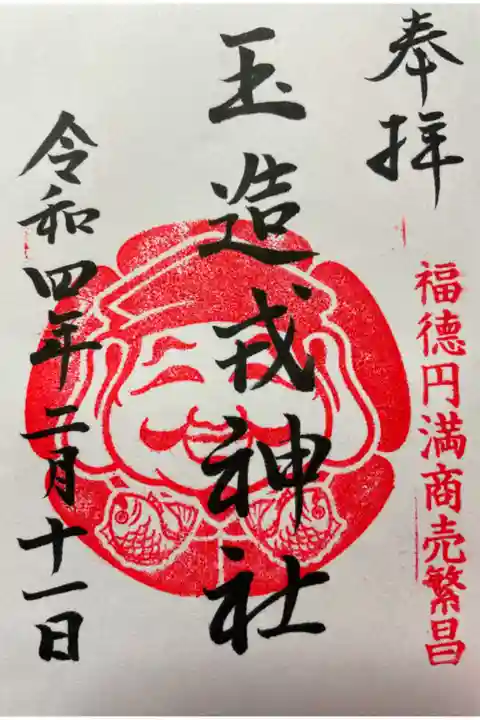 奉拝
福徳円満商売繁昌
玉造戎神社
令和四年二月十一日